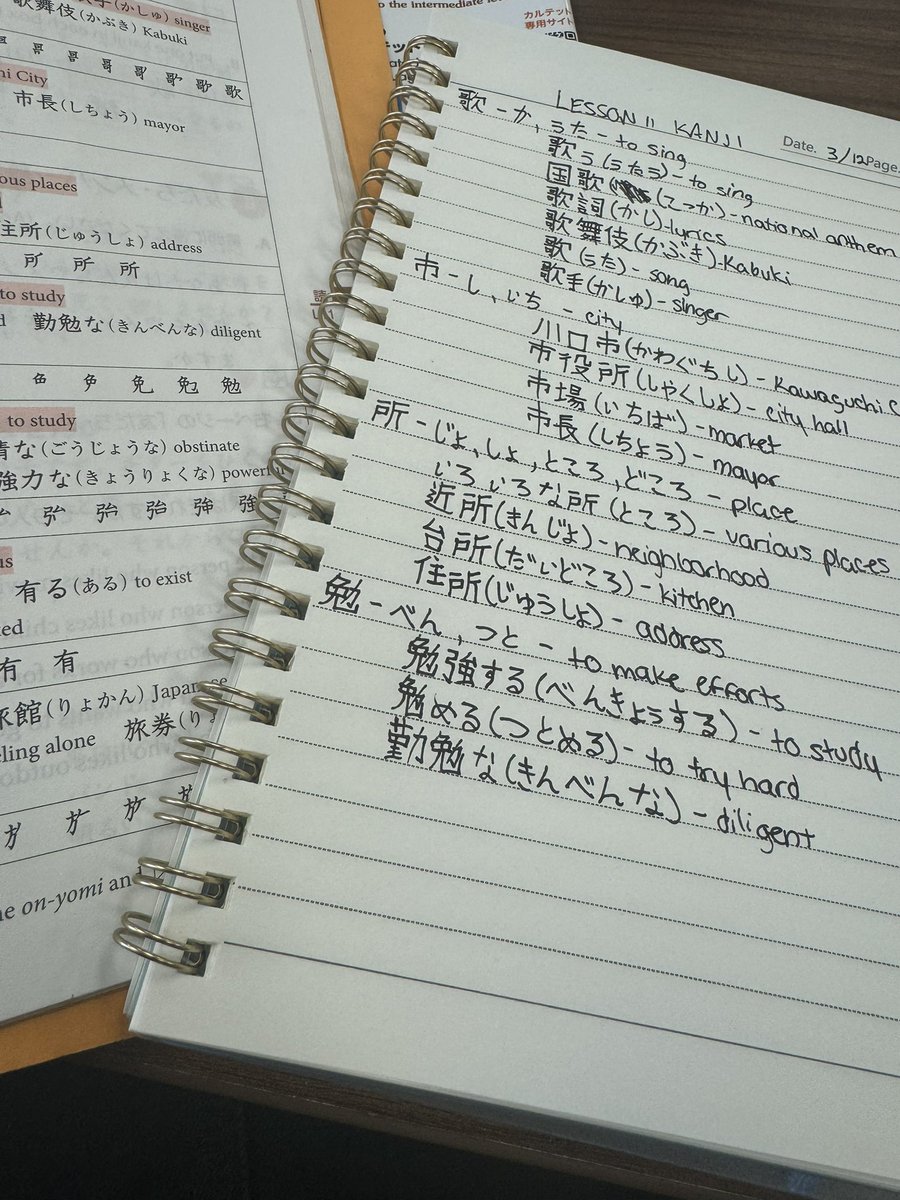 手(かしゅ) singer
歌舞伎(かぶき) Kabuki
哥 哥 哥 歌 歌 歌
ni City
市長(しちょう) mayor
ous places
住所(じゅうしょ) address
所 所 所
to study
勤勉な(きんべんな) diligent
免 勉 勉
to study
情な(ごうじょうな) obstinate
強力な(きょうりょくな) powerfu
強
us
有る(ある) to exist
ed
有 有
旅館(りょかん) Japanese
eling alone 旅券(り
he on-yomi and
o the intermediate le
カルテット
専用サイト
LESSON 11 KANJI
Date. 3/12 Page.
歌 - か, うた - to sing
歌う(うたう) - to sing
国歌 (こっか) - national anthem
歌詞(かし) - lyrics
歌舞伎(かぶき) - Kabuki
歌(うた) - song
歌手(かしゅ) - singer
市 - し, いち - city
川口市(かわぐちし) - Kawaguchi C
市役所(しやくしょ) - city hall
市場(いちば) - market
市長(しちょう) - mayor
所 - じょ, しょ, ところ, どころ - place
いろいろな所(ところ) - various places
近所(きんじょ) - neighborhood
台所(だいどころ) - kitchen
住所(じゅうしょ) - address
勉 - べん, つと - to make efforts
勉強する(べんきょうする) - to study
勉める(つとめる) - to try hard
勤勉な(きんべんな) - diligent